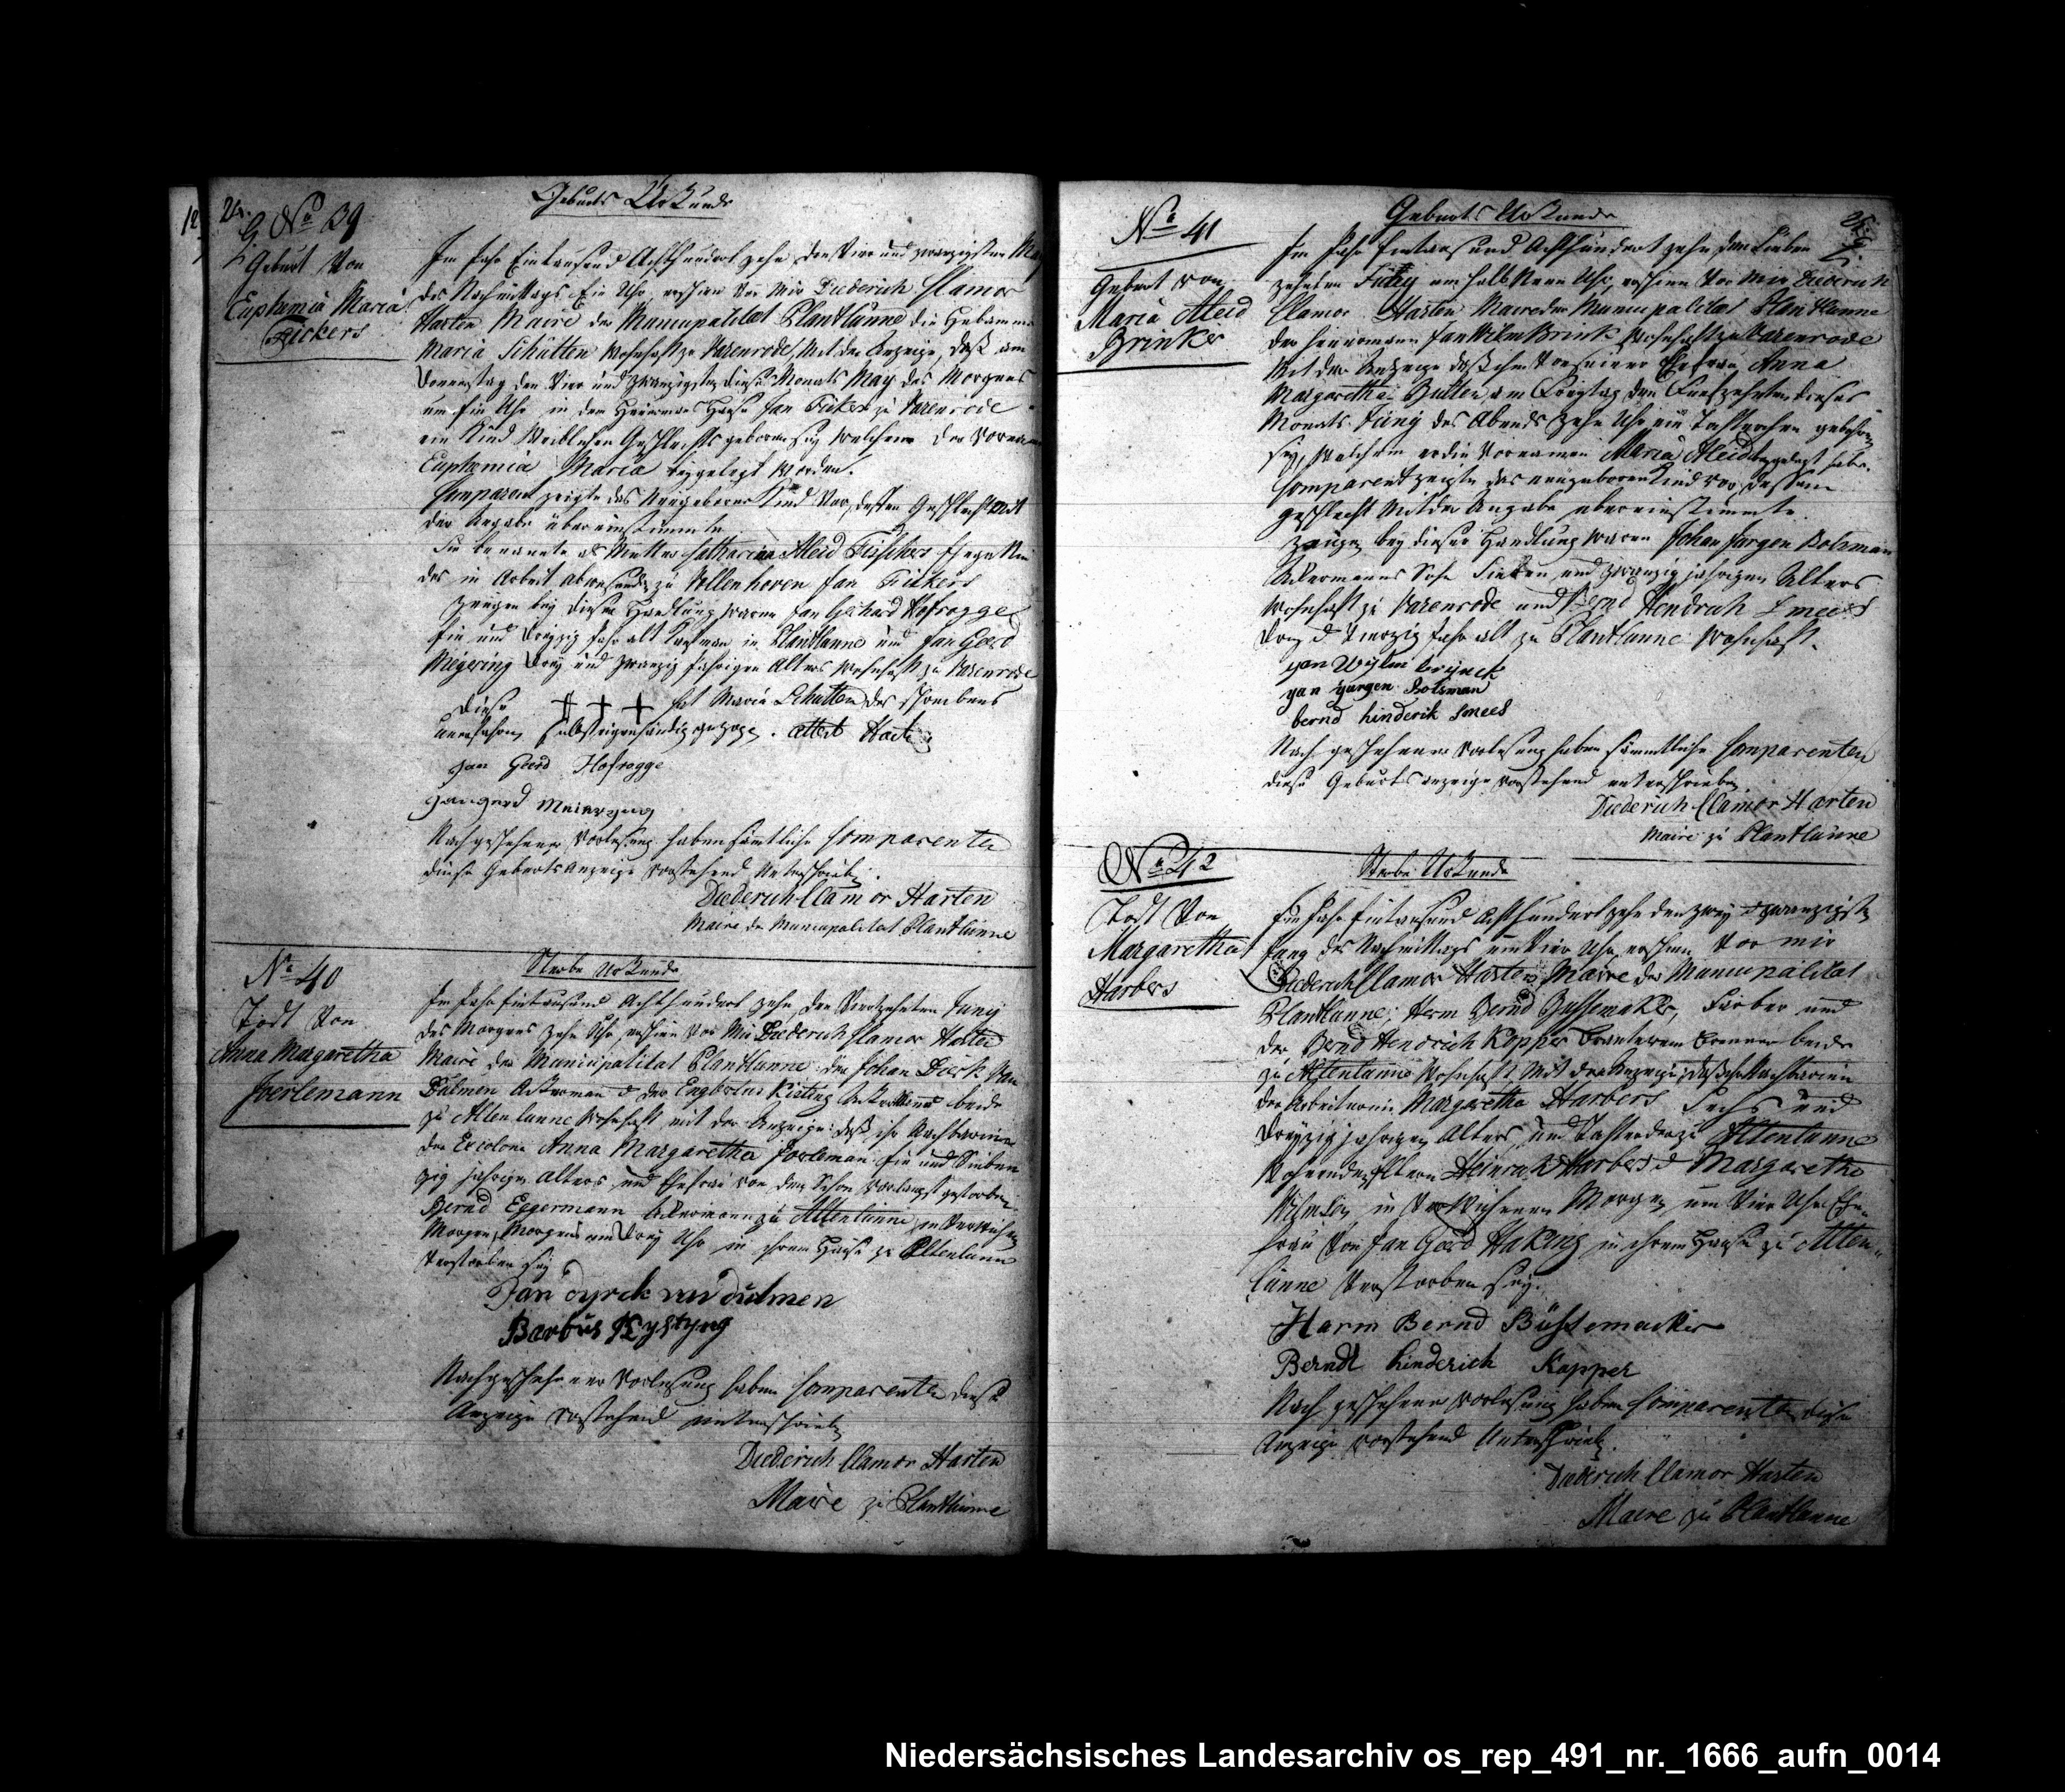 24.
No 39
Geburt Von
Euphemia Maria
Fickers
Geburts Urkunde
Im Jahr Eintausend Achthundert zehn den Vier und zwanzigsten May
des Nachmittags Ein Uhr, erschien Vor Mir Diederich Clamor
Harten Maire der Municipalitat Plantlünne die Hebamme
Maria Schütten wohnhaft zu Varenrode, Mit der Anzeige, daß am
Donnerstag den Vier und zwanzigsten dieses Monats May des Morgens
um Ein Uhr in dem Heuermans Hause Jan Fickers zu Varenrode
ein Kind Weiblichen Geschlechts geboren sey welchem der Vorname
Euphemia Maria beygelegt worden.
Comparent zeigte das Neugeborne Kind Vor, dessen Geschlecht mit
der Angabe übereinstimmte
Sie benannte als Mutter Catharina Aleid
des in Arbeit abwesenden zu Vollenhoven Jan Fickers
Zeugen bey dieser Handlung waren Jan Gerhard Hofrogge
Ein und Dreyzig Jahr alt in Plantlünne und Jan Gerd
Meyering Drey und zwanzig Jährigen Alters wohnhaft zu Varenrode
Diese +++ hat Maria Schutten des schreibens
unerfahren selbst eigenhändig gezogen. attest Harten
Jan Geerd Hofrogge
Jan gerd Meieryng
Nach geschehener Vorlesung haben sämtliche Comparenten
diese Geburts Anzeige vorstehend Unterschrieben.
Diederich Clamor Harten
Maire der Municipalitat Plantlünne
No 40
Todt Von
Anna Margaretha
Joerlemann
Sterbe Urkunde
Im Jahr Eintausend Achthundert zehn, den Vierzehnten Juny
des Morgens zehn Uhr, erschien Vor Mir Diederich Clamor Harten
Maire der Municipalitat Plantlünne: der Johan Dierk Van
Dülmen Ackerman & der Engbertus Kisting Ackermann beide
zu Altenlünne Wohnhaft mit der Anzeige: daß ihr Nachbarinn
die Anna Margaretha Joerleman Ein und Sieben
zig jährigen alters und Ehefrau von dem Schon Vorlängst gestorben
Bernd Eggermann Ackermann zu Altenlünne, am
Morgen, Morgens um Drey Uhr in ihrem Hause zu Altenlünn
Verstorben sey
Jan dyrck van dülmen
Barbus Kystyng
Nach geschehener Vorlesung haben Comparenten diese
Anzeige vorstehend unterschrieben
Diederich Clamor Harten
Maire zu Plantlünne
25.
No 41
Geburt von
Maria Aleid
Brinker
Geburts Urkunde
Im Jahr Eintausend Achthundert zehn den Sieben
zehnten Juny um halb Neun Uhr, erschien Vor Mir Diederich
Clamor Harten Maire der Municipalitat Plantlünne
der Heuermann Jan Wilm Brink Wohnhaft zu Varenrode
Mit der Anzeige daß ihm Von seiner Ehefrau Anna
Margaretha Butter am Freytag den Funfzehnten dieses
Monats Juny des Abends zehn Uhr ein Tochterchen gebohren
sey, welchem er die Vornamen Maria Aleid beygelegt habe.
Comparent zeigte das neugeboren Kind vor, dessen
geschlecht Mit der Angabe übereinstimmte.
Zeugen bey dieser Handlung waren Johan Jurgen Bolsman
Ackermanns Sohn Sieben und zwanzig jährigen Alters
Wohnhaft zu Varenrode und Bernd Hendrich Smees
Drey & Vierzig Jahr alt zu Plantlünne Wohnhaft.
yan Wylm brijnck
yan yurgen Bolsman
bernd hinderik Smees
Nach geschehener Vorlesung haben sämmtliche Comparenten
diese Geburts anzeige vorstehend unterschrieben
Diederich Clamor Harten
Maire zu Plantlünne
No 42
Todt Von
Margaretha
Harbers
Sterbe Urkunde
Im Jahr Eintausend Achthundert zehn den zwey & zwanzigsten
Juny des Nachmittags um Vier Uhr, erschien Vor mir
Diederich Clamor Harten Maire der Municipalitat
Plantlünne; Herm Bernd Bussemaker, Farber und
der Bernd Hendrich Kopper Branteweinbrenner beide
zu Altenlünne Wohnhaft, Mit der Anzeige, daß ihr Nachbarinn
die Margaretha Harbers Sechs und
Dreyzig jährigen Alters, und Tochter der zu Altenlünne
Wohnenden Eltern Heinrich Harbers & Margaretha
in Morgen um Vier Uhr Ehe-
frau Von Jan Gerd Haking in ihrem Hause zu Alten-
lünne Verstorben sey.
Harm Bernd Büssemacker
Berndt hinderich Kopper
Nach geschehener Vorlesung haben Comparenten diese
Anzeige vorstehend Unterschrieben.
Diederich Clamor Harten
Maire zu Plantlünne
Niedersächsisches Landesarchiv os_rep_491_nr._1666_aufn_0014